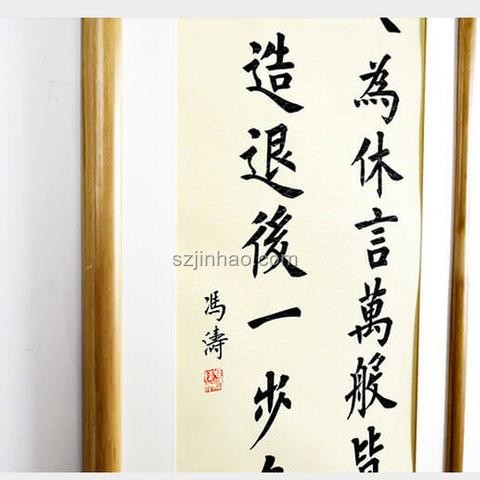 為休言萬般皆
造退後一步
馮濤
szjinhao.com